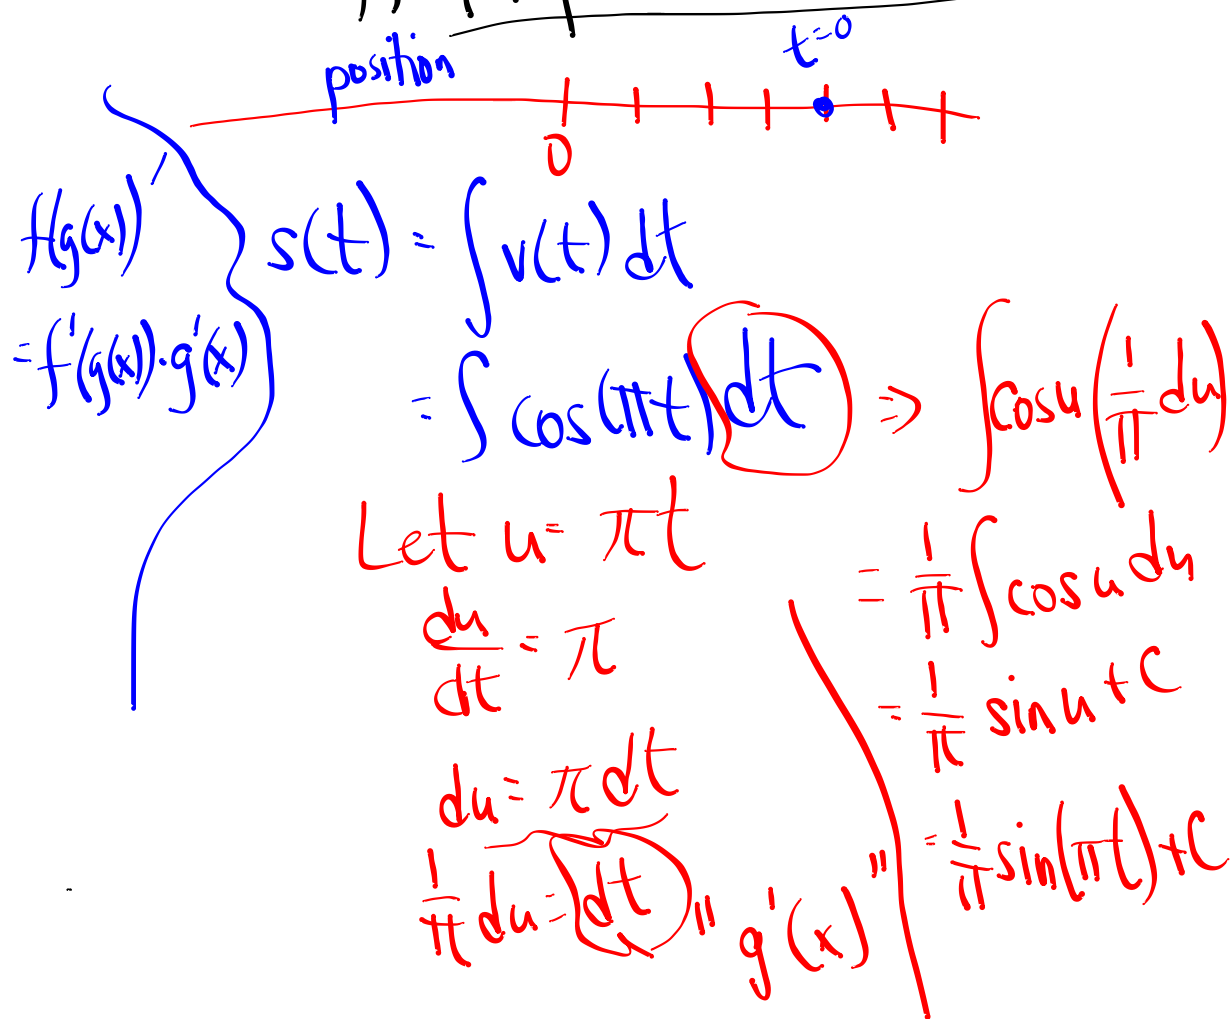 t=0
position
0
f(g(x))'
= f'(g(x))·g'(x)
s(t) = ∫ v(t) dt
= ∫ cos(πt) dt ⇒ ∫ cosu (1/π du)
Let u = πt
du/dt = π
du = π dt
1/π du = dt
" g'(x) "
= 1/π ∫ cosu du
= 1/π sinu + C
= 1/π sin(πt) + C